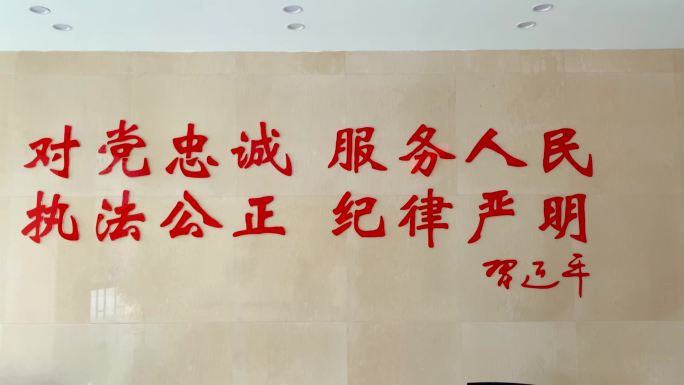 对党忠诚 服务人民
执法公正 纪律严明
习近平